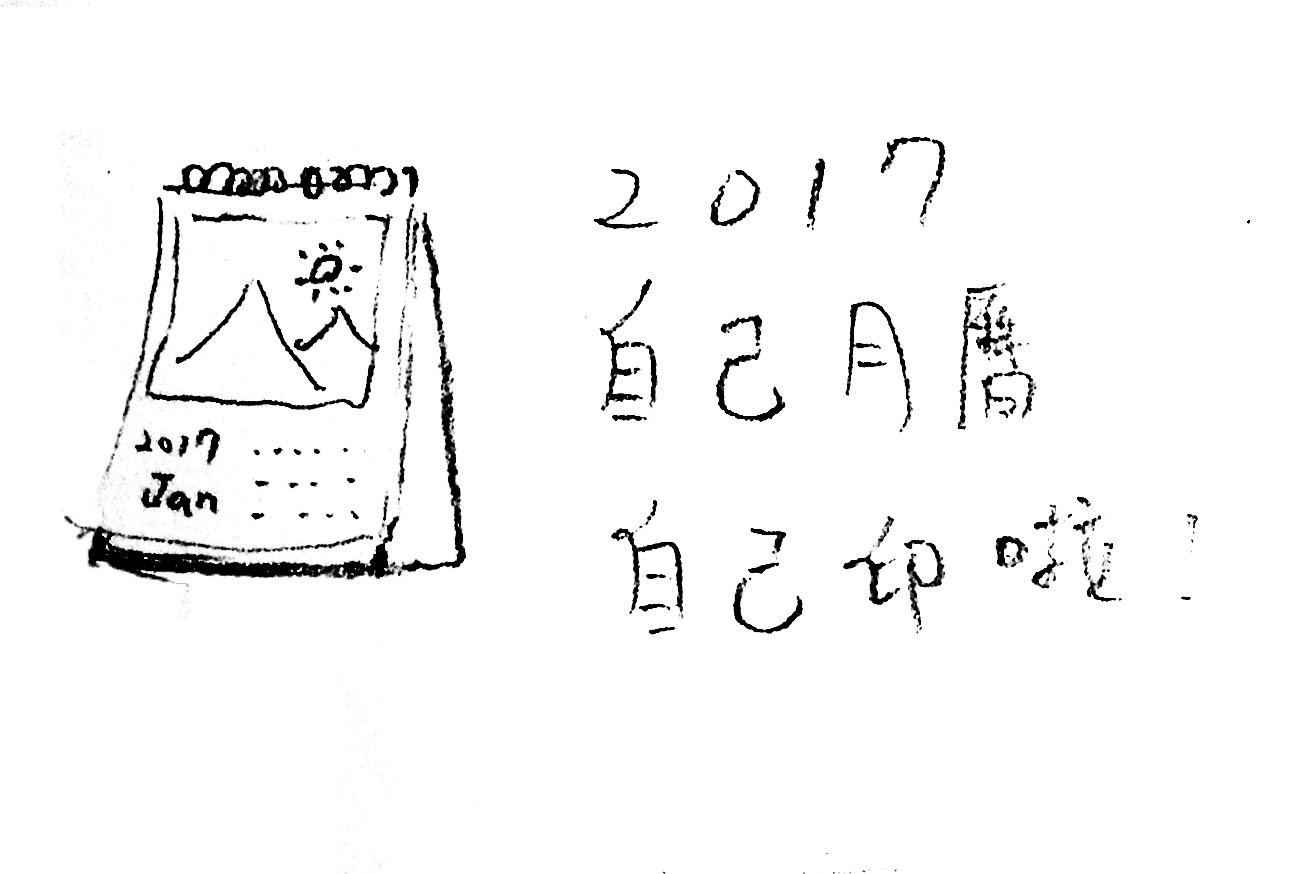 2017
Jan
2017
自己月曆
自己印啦!